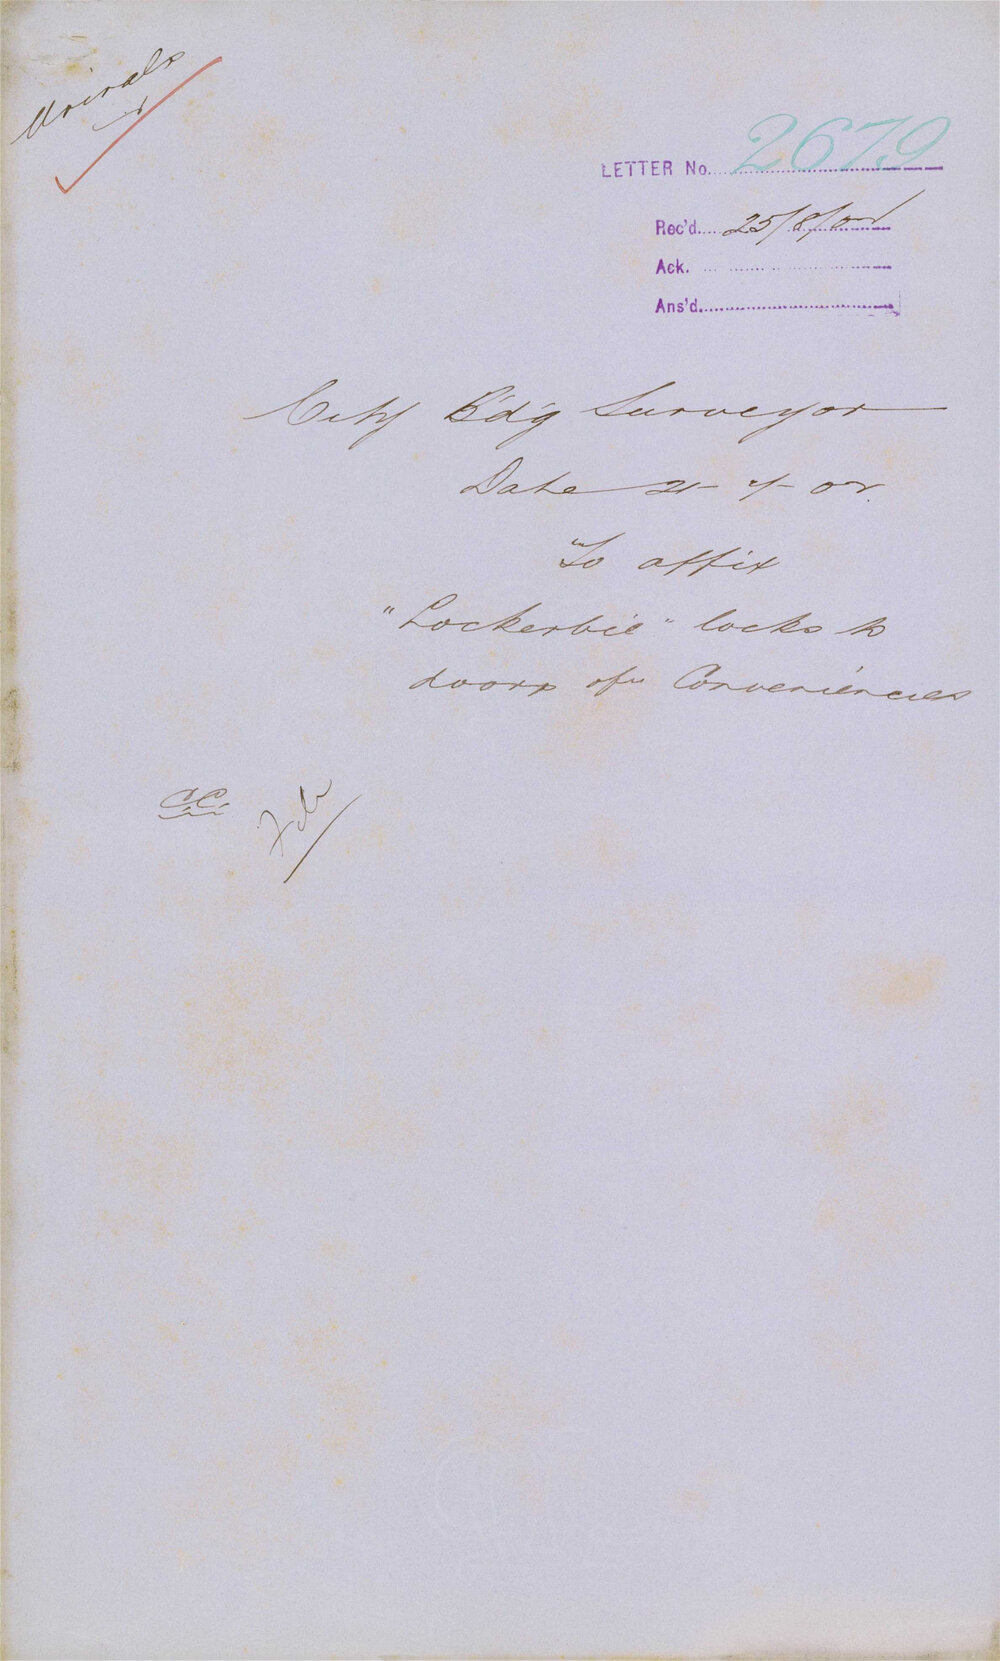 Urinals
LETTER No. 2679
Rec'd. 25/8/02
Ack.
Ans'd.
City B'd'g Surveyor
Date 21- -02.
To affix
"Lockerbie" locks to
doors of Conveniences
C.C.
File